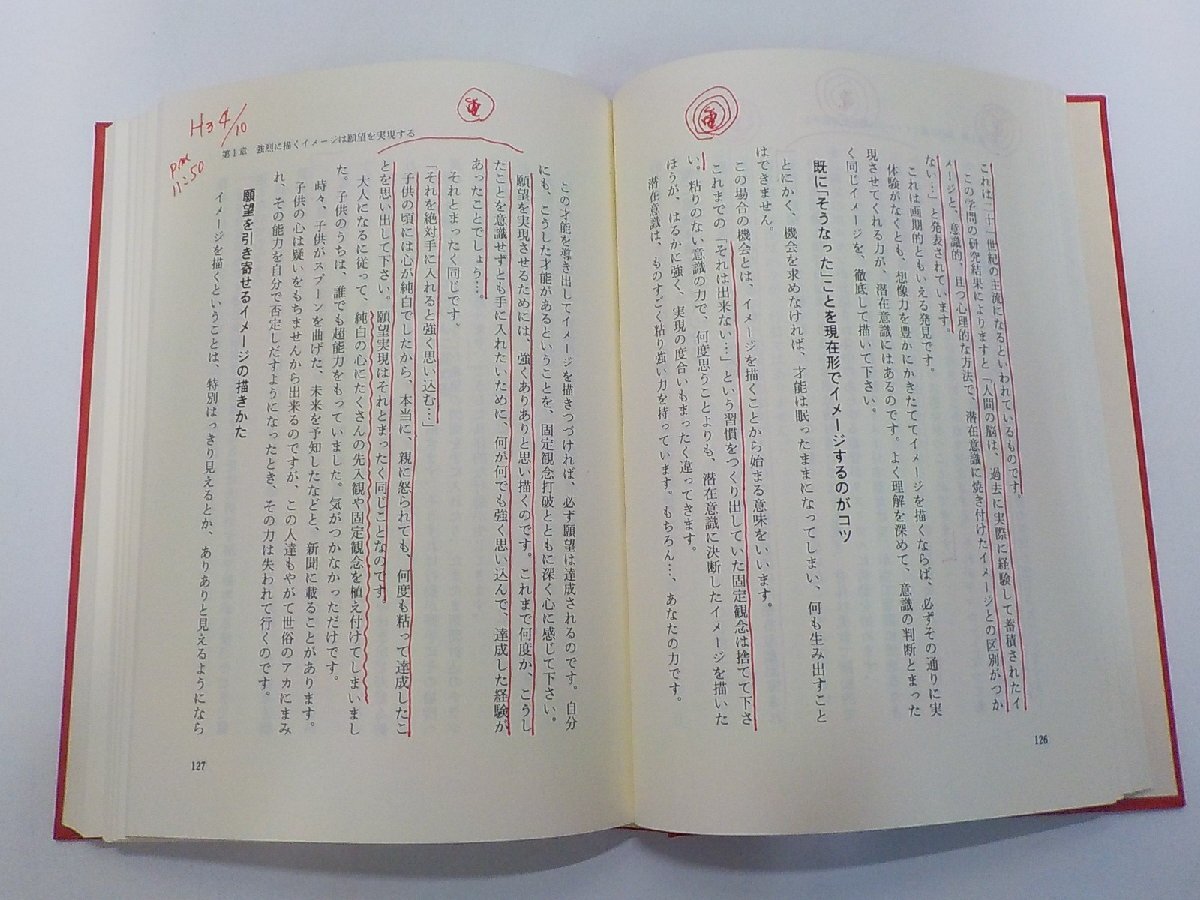 これは二十一世紀の主流になるといわれているものです。
この学問の研究結果によりますと「人間の脳は、過去に実際に経験して蓄積されたイ
メージと、意識的、且つ心理的な方法で、潜在意識に焼き付けたイメージとの区別がつか
ない…」と発表されています。
これは画期的ともいえる発見です。
体験がなくとも、想像力を豊かにかきたててイメージを描くならば、必ずその通りに実
現させてくれる力が、潜在意識にはあるのです。よく理解を深めて、意識の判断とまった
く同じイメージを、徹底して描いて下さい。
既に「そうなった」ことを現在形でイメージするのがコツ
とにかく、機会を求めなければ、才能は眠ったままになってしまい、何も生み出すこと
はできません。
この場合の機会とは、イメージを描くことから始まる意味をいいます。
これまでの「それは出来ない…」という習慣をつくり出していた固定観念は捨てて下さ
い。粘りのない意識の力で、何度思うことよりも、潜在意識に決断したイメージを描いた
ほうが、はるかに強く、実現の度合いもまったく違ってきます。
潜在意識は、ものすごく粘り強い力を持っています。もちろん…、あなたの力です。
126
第4章 強烈に描くイメージは願望を実現する
H3 4/10
P.M
11:50
この才能を導き出してイメージを描きつづければ、必ず願望は達成されるのです。自分
にも、こうした才能があるということを、固定観念打破とともに深く心に感じて下さい。
願望を実現させるためには、強くありありと思い描くのです。これまで何度か、こうし
たことを意識せずとも手に入れたいために、何が何でも強く思い込んで、達成した経験が
あったことでしょう…。
それとまったく同じです。
「それを絶対手に入れると強く思い込む…」
子供の頃には心が純白でしたから、本当に、親に怒られても、何度も粘って達成したこ
とを思い出して下さい。願望実現はそれとまったく同じことなのです。
大人になるに従って、純白の心にたくさんの先入観や固定観念を植え付けてしまいまし
た。子供のうちは、誰でも超能力をもっていました。気がつかなかっただけです。
時々、子供がスプーンを曲げた、未来を予知したなどと、新聞に載ることがあります。
子供の心は疑いをもちませんから出来るのですが、この人達もやがて世俗のアカにまみ
れ、その能力を自分で否定しだすようになったとき、その力は失われて行くのです。
願望を引き寄せるイメージの描きかた
イメージを描くということは、特別はっきり見えるとか、ありありと見えるようになら
127